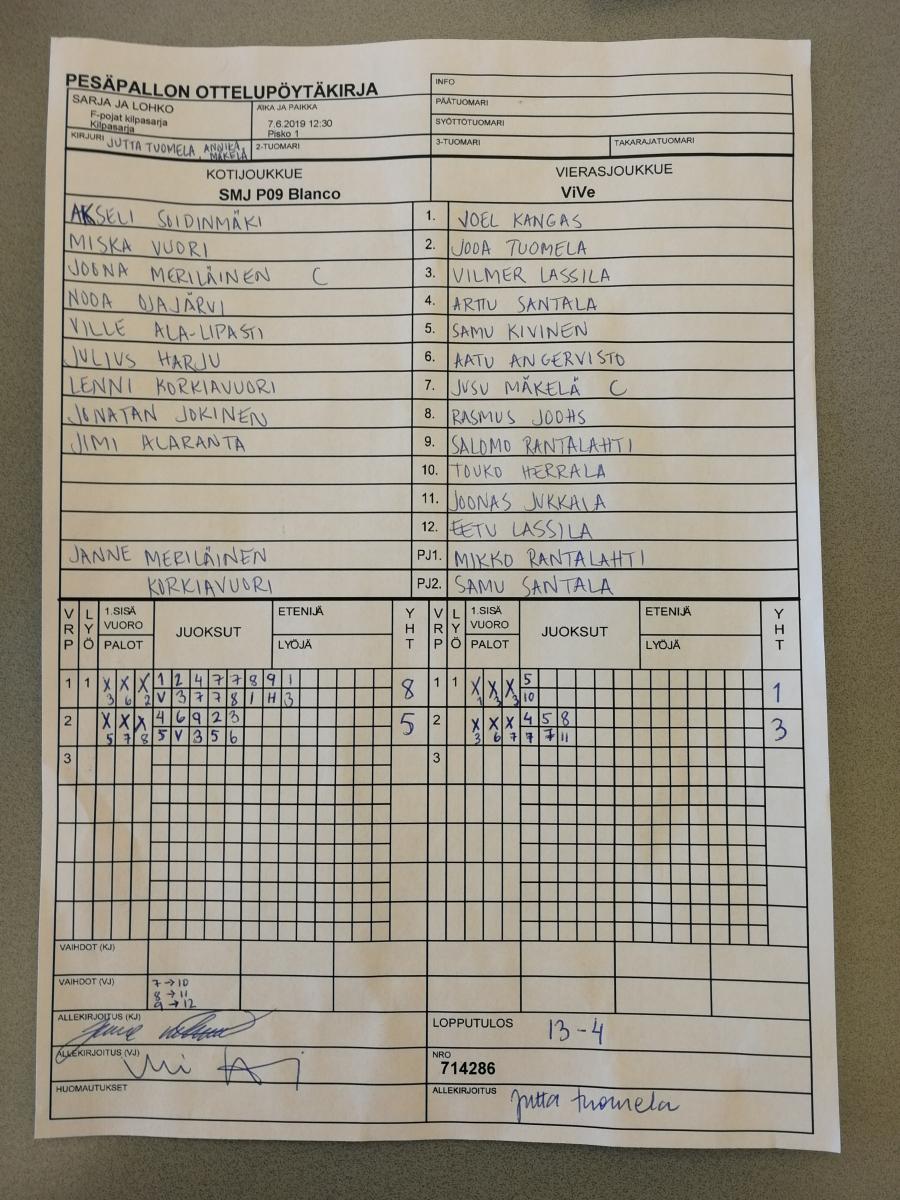 PESÄPALLON OTTELUPÖYTÄKIRJA
SARJA JA LOHKO
F-pojat kilpasarja
Kilpasarja
AIKA JA PAIKKA
7.6.2019 12:30
Pisko 1
INFO
PÄÄTUOMARI
SYÖTTÖTUOMARI
KIRJURI JUTTA TUOMELA, ANNIKA MÄKELÄ
2-TUOMARI
3-TUOMARI
TAKARAJATUOMARI
KOTIJOUKKUE
SMJ P09 Blanco
VIERASJOUKKUE
ViVe
AKSELI SOIDINMÄKI 1. JOEL KANGAS
MISKA VUORI 2. JOOA TUOMELA
JOONA MERILÄINEN C 3. VILMER LASSILA
NOOA OJAJÄRVI 4. ARTTU SANTALA
VILLE ALA-LIPASTI 5. SAMU KIVINEN
JULIUS HARJU 6. AATU ANGERVISTO
LENNI KORKIAVUORI 7. JUSU MÄKELÄ C
JONATAN JOKINEN 8. RASMUS JOOHS
JIMI ALARANTA 9. SALOMO RANTALAHTI
10. TOUKO HERRALA
11. JOONAS JUKKALA
12. EETU LASSILA
JANNE MERILÄINEN PJ1. MIKKO RANTALAHTI
KORKIAVUORI PJ2. SAMU SANTALA
VRP LYÖ 1.SISÄ VUORO PALOT JUOKSUT ETENIJÄ LYÖJÄ YHT VRP LYÖ 1.SISÄ VUORO PALOT JUOKSUT ETENIJÄ LYÖJÄ YHT
1 1 X X X 1 2 4 7 7 8 9 1 8 1 1 X X X 5 1
3 6 2 V 3 7 7 8 1 H 3 10
2 X X X 4 6 9 2 3 5 2 X X X 4 5 8 3
5 7 8 5 V 3 5 6 3 6 7 7 7 11
3 3
VAIHDOT (KJ)
VAIHDOT (VJ)
7→10
8→11
9→12
ALLEKIRJOITUS (KJ)
LOPPUTULOS 13-4
ALLEKIRJOITUS (VJ)
NRO
714286
HUOMAUTUKSET
ALLEKIRJOITUS Jutta Tuomela